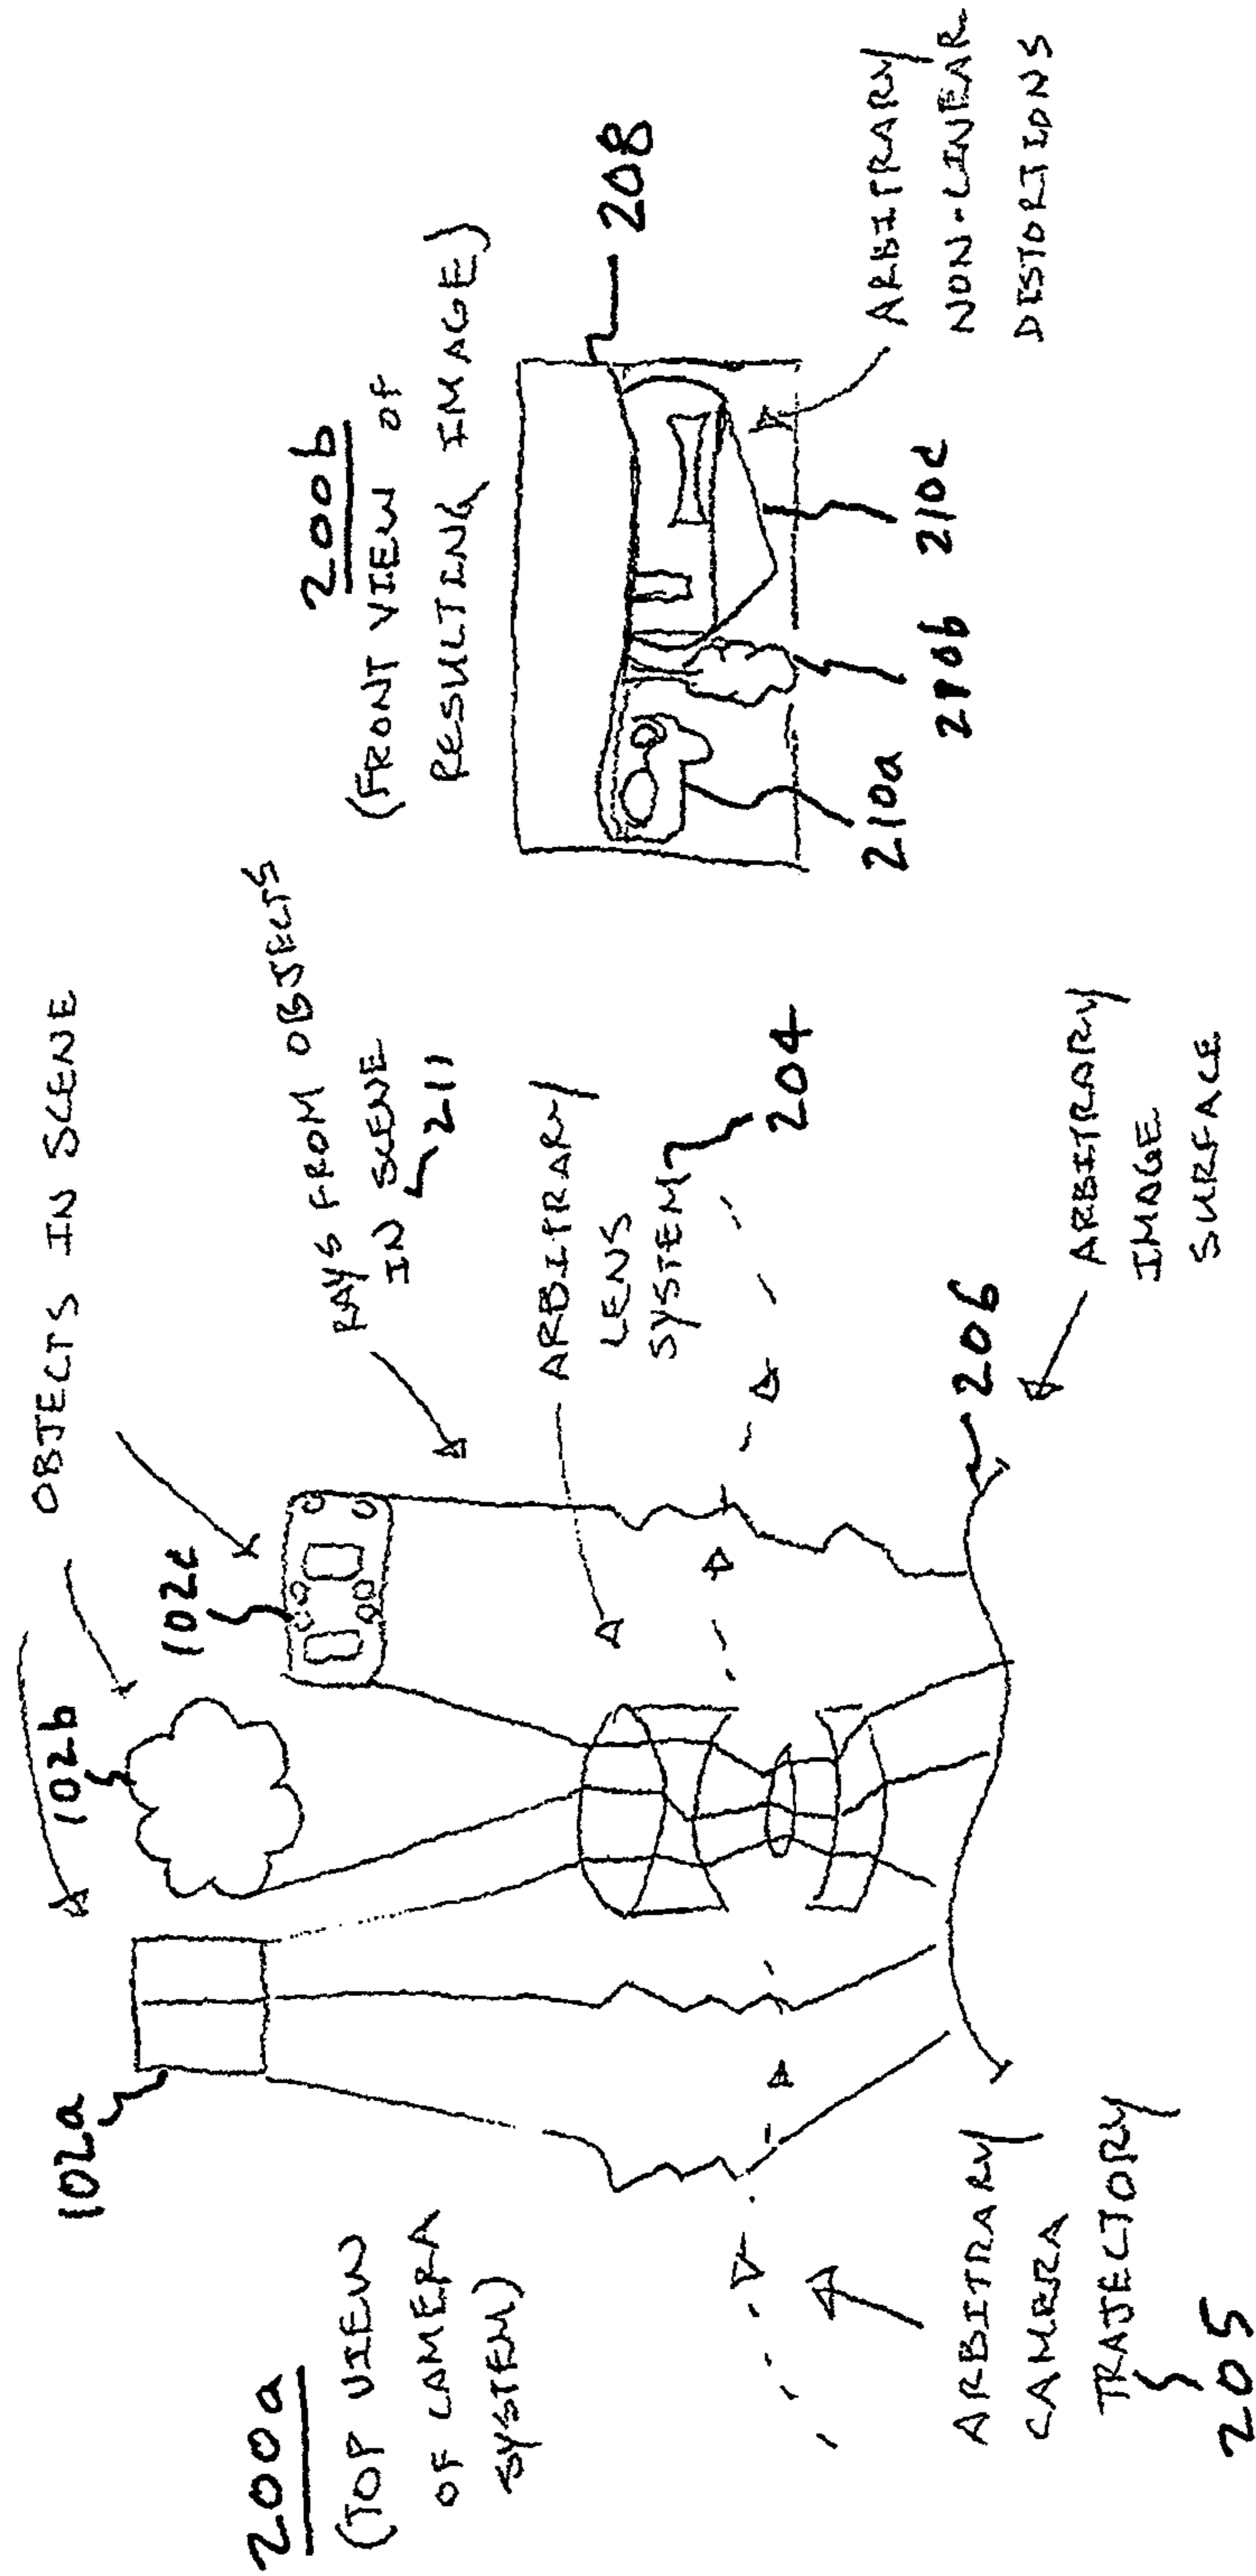 200a
(TOP VIEW
OF CAMERA
SYSTEM)
102a
102b
102c
OBJECTS IN SCENE
RAYS FROM OBJECTS
IN SCENE
211
ARBITRARY
LENS
SYSTEM
204
206
ARBITRARY
IMAGE
SURFACE
ARBITRARY
CAMERA
TRAJECTORY
205
200b
(FRONT VIEW OF
RESULTING IMAGE)
208
210a
210b
210c
ARBITRARY
NON-LINEAR
DISTORTIONS